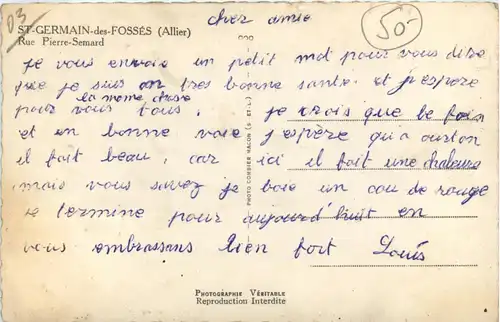 03
cher amie
50-
ST-GERMAIN-des-FOSSÉS (Allier)
Rue Pierre-Semard
je vous envoie un petit mot pour vous dire
que je suis en tres bonne santé et j'espère
la meme chose
pour vous tous. je crois que le foin
et en bonne voie j'espère qu'a ourton
il fait beau, car ici il fait une chaleure
mais vous savez je boie un cou de rouge
je termine pour aujourd'huit en
vous embrassans bien fort Louis
PHOTO COMBIER MACON (S.-ET-L.)
PHOTOGRAPHIE VÉRITABLE
Reproduction Interdite